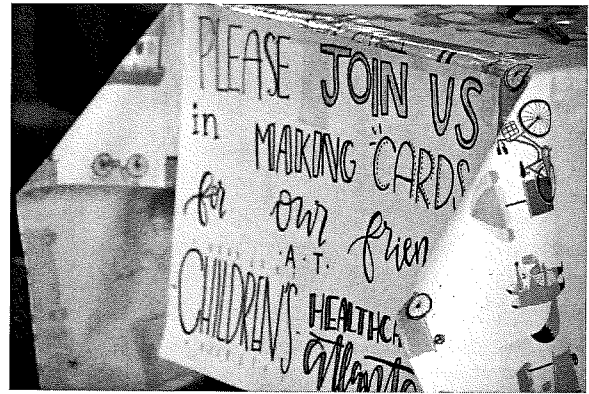 PLEASE JOIN US
in MAKING "CARDS
for our frien
A.T.
CHILDREN'S HEALTHCA
atlanta